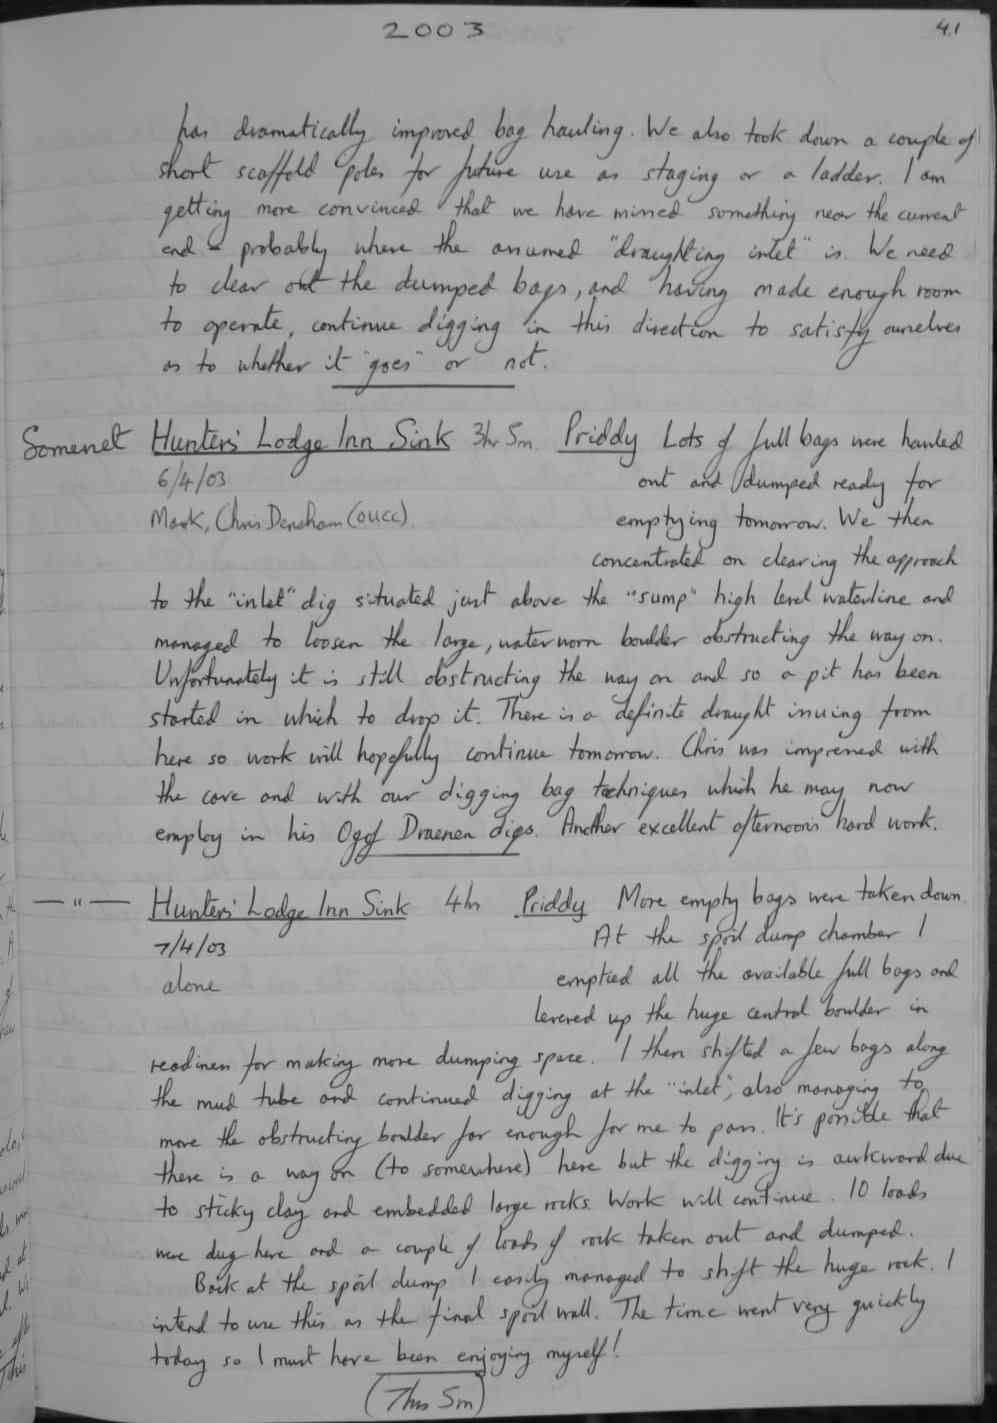 2003
41
has dramatically improved bag hauling. We also took down a couple of
short scaffold poles for future use as staging or a ladder. I am
getting more convinced that we have missed something near the current
end - probably where the assumed "draughting inlet" is. We need
to clear out the dumped bags, and having made enough room
to operate, continue digging in this direction to satisfy ourselves
as to whether it "goes" or not.
Somerset Hunters' Lodge Inn Sink 3hr 5m. Priddy Lots of full bags were hauled
6/4/03 out and dumped ready for
Mark, Chris Densham (OUCC). emptying tomorrow. We then
concentrated on clearing the approach
to the "inlet" dig situated just above the "sump" high level waterline and
managed to loosen the large, waterworn boulder obstructing the way on.
Unfortunately it is still obstructing the way on and so a pit has been
started in which to drop it. There is a definite draught issuing from
here so work will hopefully continue tomorrow. Chris was impressed with
the cave and with our digging bag techniques which he may now
employ in his Ogof Draenen digs. Another excellent afternoon's hard work.
— " — Hunters' Lodge Inn Sink 4hr Priddy More empty bags were taken down.
7/4/03 At the spoil dump chamber I
alone emptied all the available full bags and
levered up the huge central boulder in
readiness for making more dumping space. I then shifted a few bags along
the mud tube and continued digging at the "inlet", also managing to
move the obstructing boulder far enough for me to pass. It's possible that
there is a way on (to somewhere) here but the digging is awkward due
to sticky clay and embedded large rocks. Work will continue. 10 loads
were dug here and a couple of loads of rock taken out and dumped.
Back at the spoil dump I easily managed to shift the huge rock. I
intend to use this as the final spoil wall. The time went very quickly
today so I must have been enjoying myself!
(7hrs 5m)